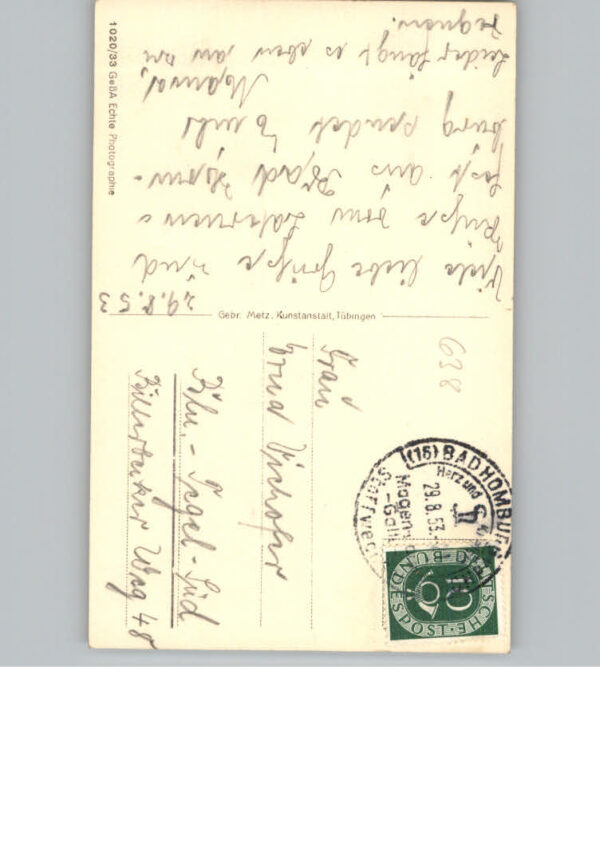 29.8.53
Viele liebe Grüße und
Küsse vom Laternen-
fest aus Bad Hom-
burg sendet Euch
Leider fängt es eben an zu
regnen.
1020/33 GeBA Echte Photographie
Gebr. Metz, Kunstanstalt, Tübingen
638
Frau
Erna
Bln.-Tegel-Süd
Billerbecker Weg 48
(16) BAD HOMBURG
Herz und
29.8.53.
Magen-
Stoffwec
DEUTSCHE BUNDESPOST
10